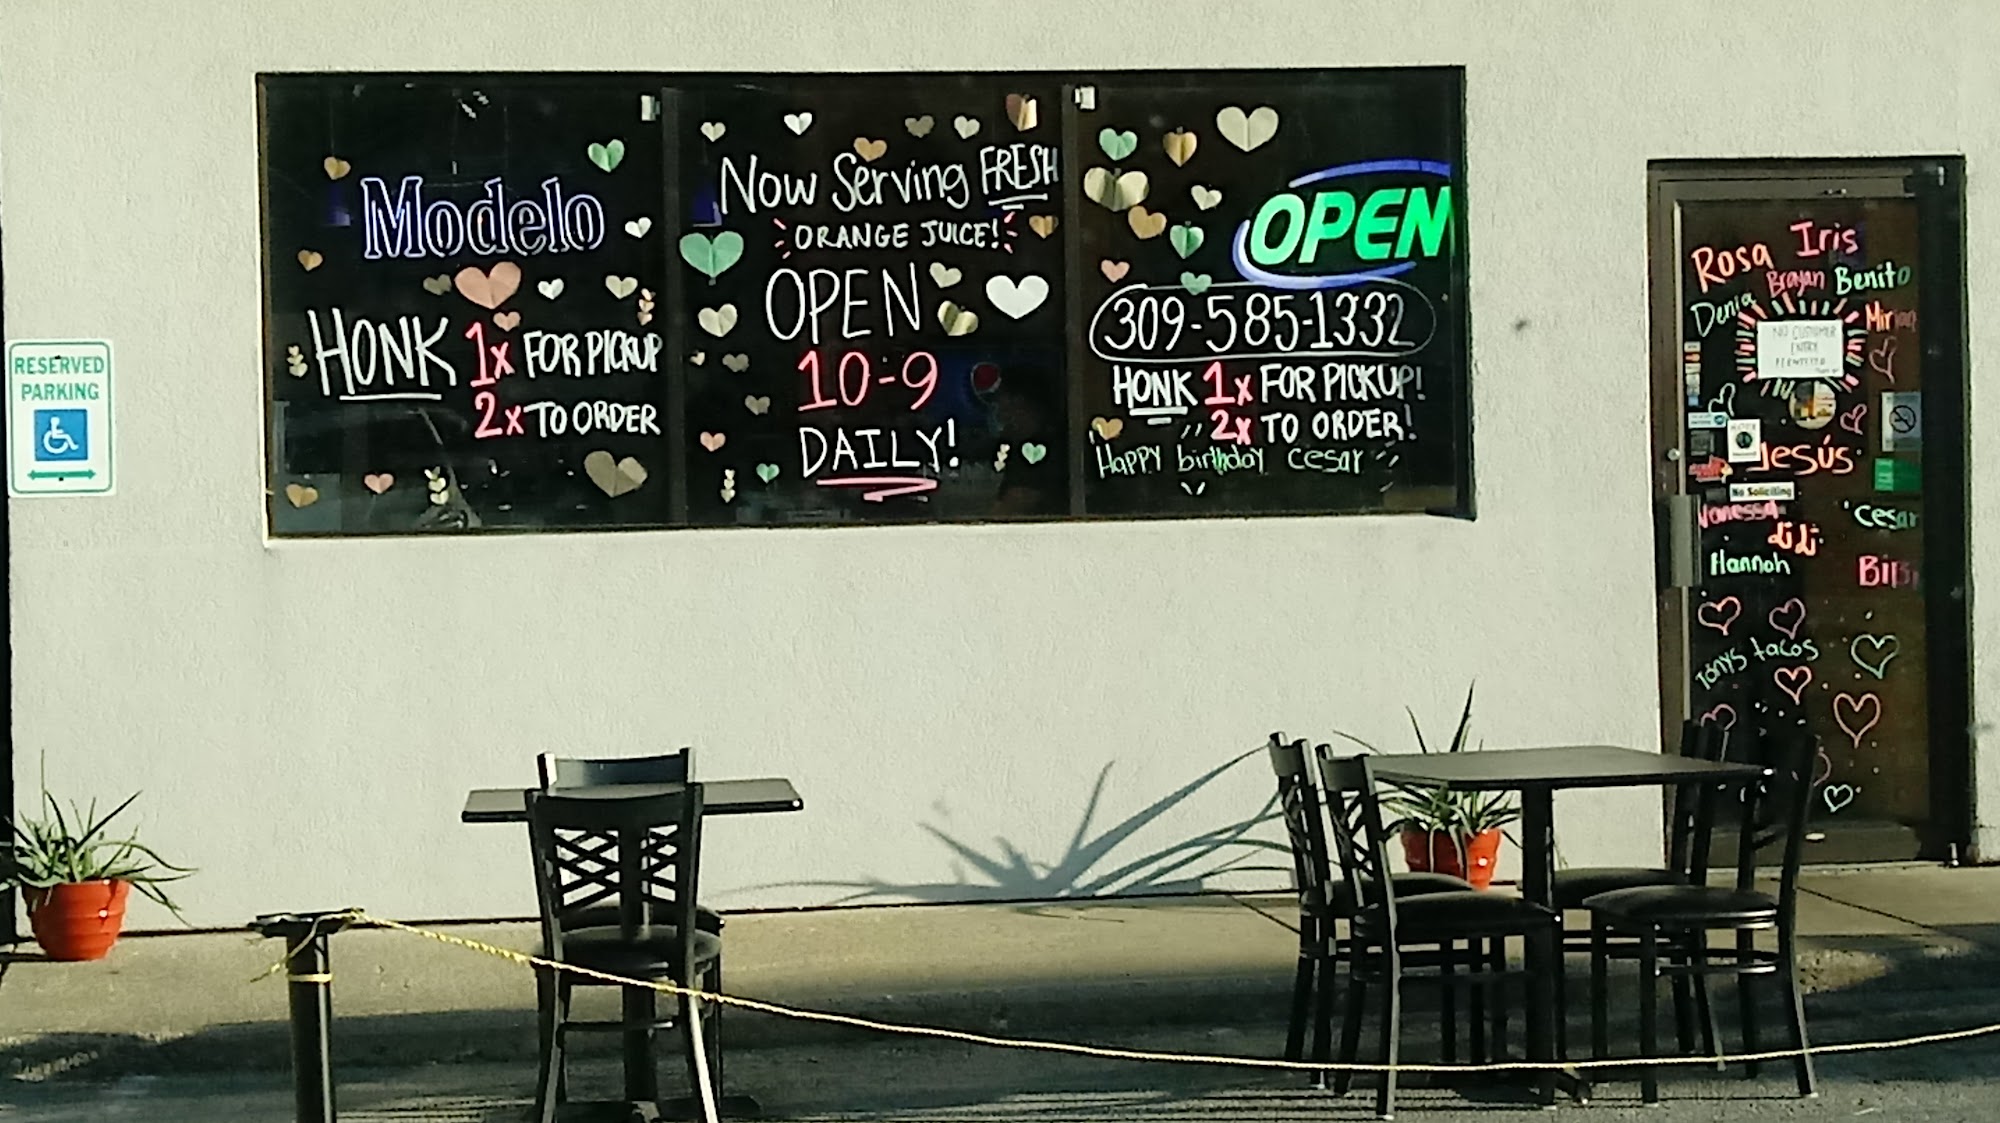 RESERVED
PARKING
Modelo
HONK 1x FOR PICKUP
2x TO ORDER
Now Serving FRESH
ORANGE JUICE!
OPEN
10-9
DAILY!
OPEN
309-585-1332
HONK 1x FOR PICKUP!
2x TO ORDER!
Happy birthday cesar
Rosa Iris
Brayan Benito
Denia
Mirian
NO CUSTOMER
ENTRY
Jesús
No Soliciting
Vanessa
Cesar
didi
Hannah
BiBi
Tonys tacos